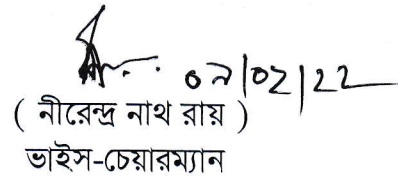 ০৯/০২/২২
( নীরেন্দ্র নাথ রায় )
ভাইস-চেয়ারম্যান